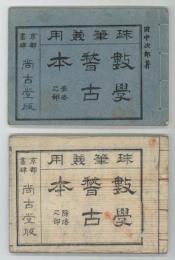 田中次郎著
珠筆兼用
數學
稽古
本
之部
京都
書肆
尚古堂版
珠筆兼用
數學
稽古
本
除法
之部
京都
書肆
尚古堂版